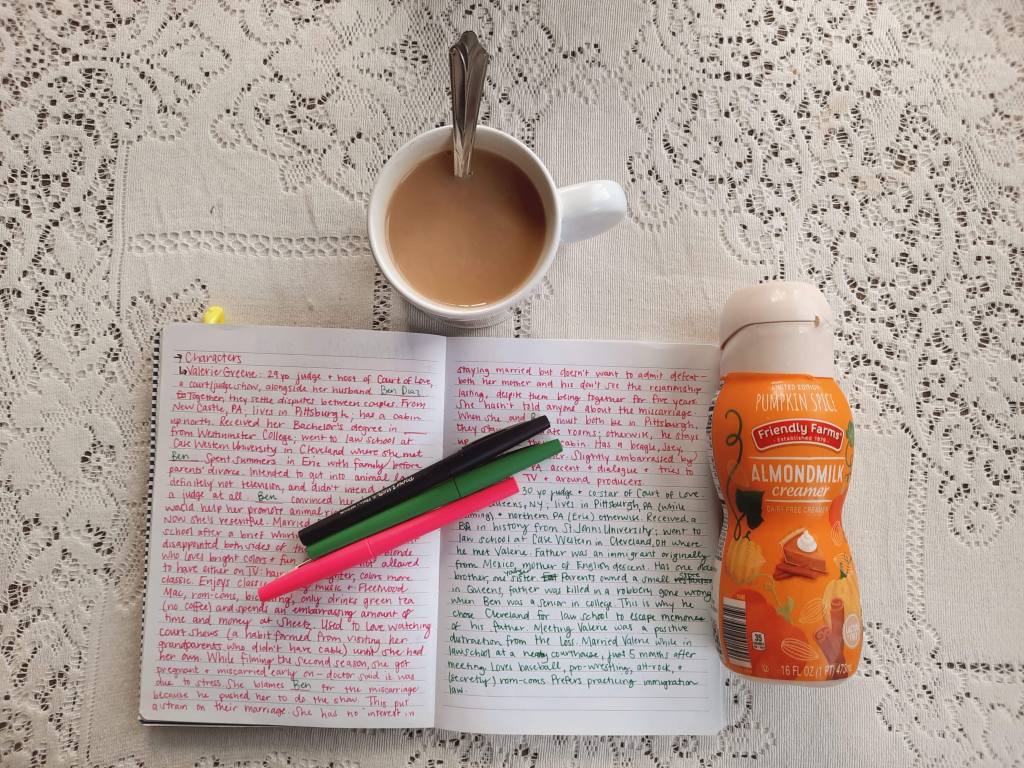 → Characters
↳ Valerie Greene: 29 yo judge + host of Court of Love,
a court/judge show, alongside her husband Ben Diaz.
Together, they settle disputes between couples. From
New Castle, PA; lives in Pittsburgh; has a cabin
up north. Received her Bachelor's degree in
from Westminster College; went to law school at
Case Western University in Cleveland where she met
Ben. Spent summers in Erie with family before
parents' divorce. Intended to get into animal
definitely not television, and didn't intend
a judge at all. Ben convinced her
would help her promote animal
Now she's resentful. Married
school after a brief
disappointed both sides of the blonde
who loves bright colors + fun not allowed
to have either on TV: hair colors more
classic. Enjoys classic music + Fleetwood
Mac, rom-coms, only drinks green tea
(no coffee) and spends an embarrassing amount of
time and money at Sheetz. Used to love watching
court shows (a habit formed from visiting her
grandparents who didn't have cable) until she had
her own. While filming the second season, she got
pregnant + miscarried early on - doctor said it was
due to stress. She blames Ben for the miscarriage
because he pushed her to do the show. This put
a strain on their marriage. She has no interest in
staying married but doesn't want to admit defeat -
both her mother and his don't see the relationship
lasting, despite them being together for five years.
She hasn't told anyone about the miscarriage.
When she and Ben must both be in Pittsburgh,
they stay rate rooms; otherwise, he stays
up cabin. Has a beagle, Joey.
Slightly embarrassed by
accent + dialogue + tries to
TV + around producers.
30 yo judge + co-star of Court of Love.
Queens, NY; lives in Pittsburgh, PA (while
+ northern PA (Erie) otherwise. Received a
BA in history from St. Johns University; went to
law school at Case Western in Cleveland, OH where
he met Valerie. Father was an immigrant originally
from Mexico, mother of English descent. Has one
brother, one sister. Parents owned a small store
in Queens, father was killed in a robbery gone wrong
when Ben was a senior in college. This is why he
chose Cleveland for law school to escape memories
of his father. Meeting Valerie was a positive
distraction from the loss. Married Valerie while in
law school at a courthouse, just 5 months after
meeting. Loves baseball, pro-wrestling, alt-rock, +
(secretly) rom-coms. Prefers practicing immigration
law.
LIMITED EDITION
PUMPKIN SPICE
Friendly Farms®
Established 1979
ALMONDMILK
creamer
DAIRY-FREE CREAMER
35
16 FL OZ (1 PT) 473